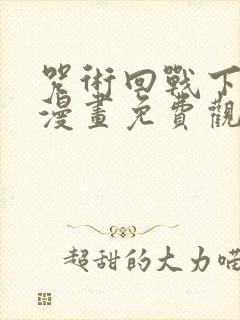 咒術回戰下
漫畫免費觀
超甜的大力喵